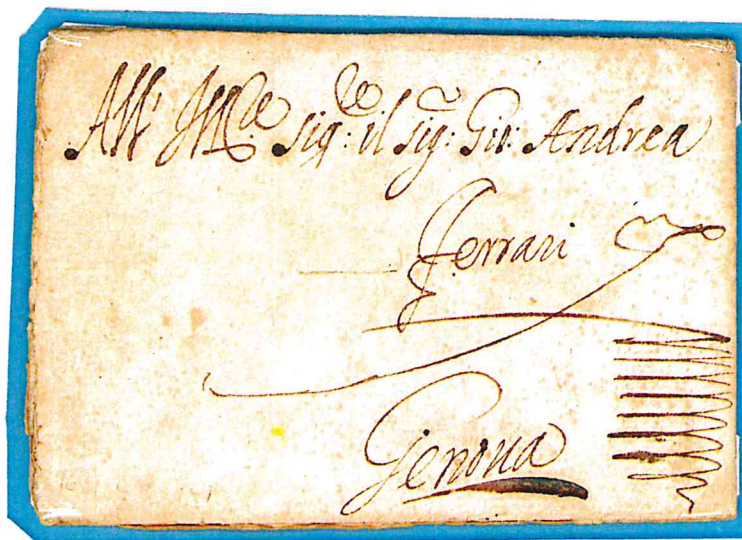 All' Ill.re Sig.re il Sig.r Gio: Andrea
Ferrari
Genoua